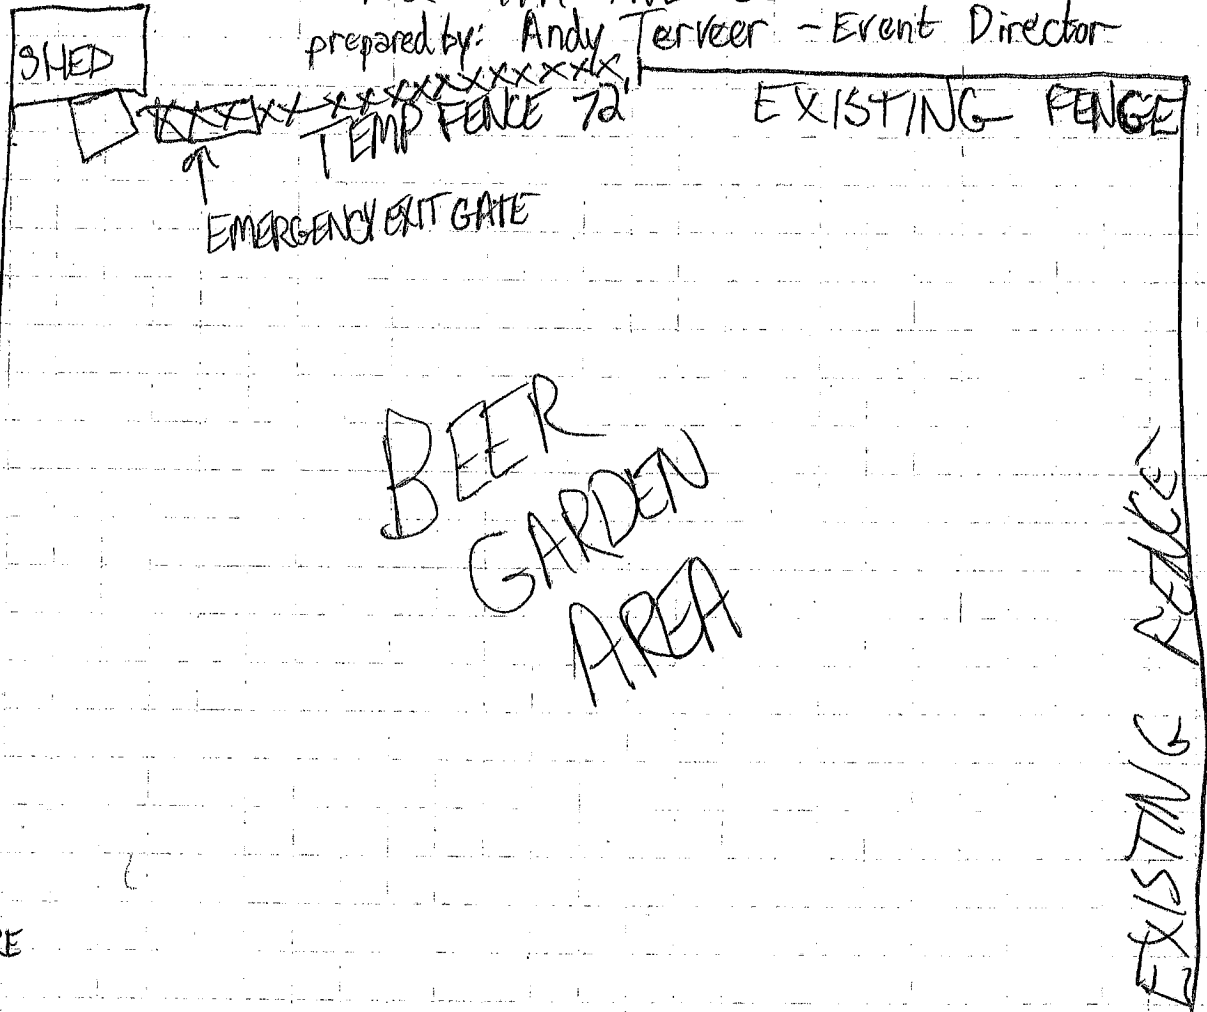 prepared by: Andy Terveer - Event Director
SHED
TEMP FENCE 72'
EXISTING FENCE
EMERGENCY EXIT GATE
BEER
GARDEN
AREA
EXISTING FENCE